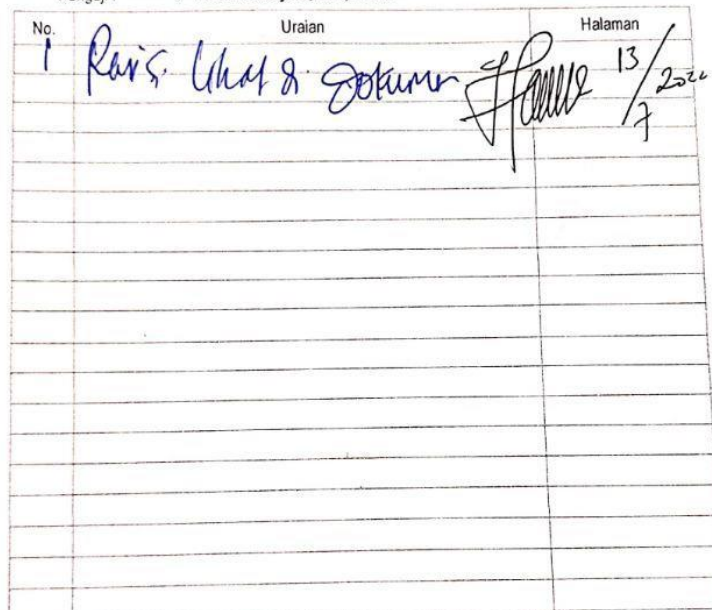 No. Uraian Halaman
1 Revisi lihat di Dokumen 13/7 2022